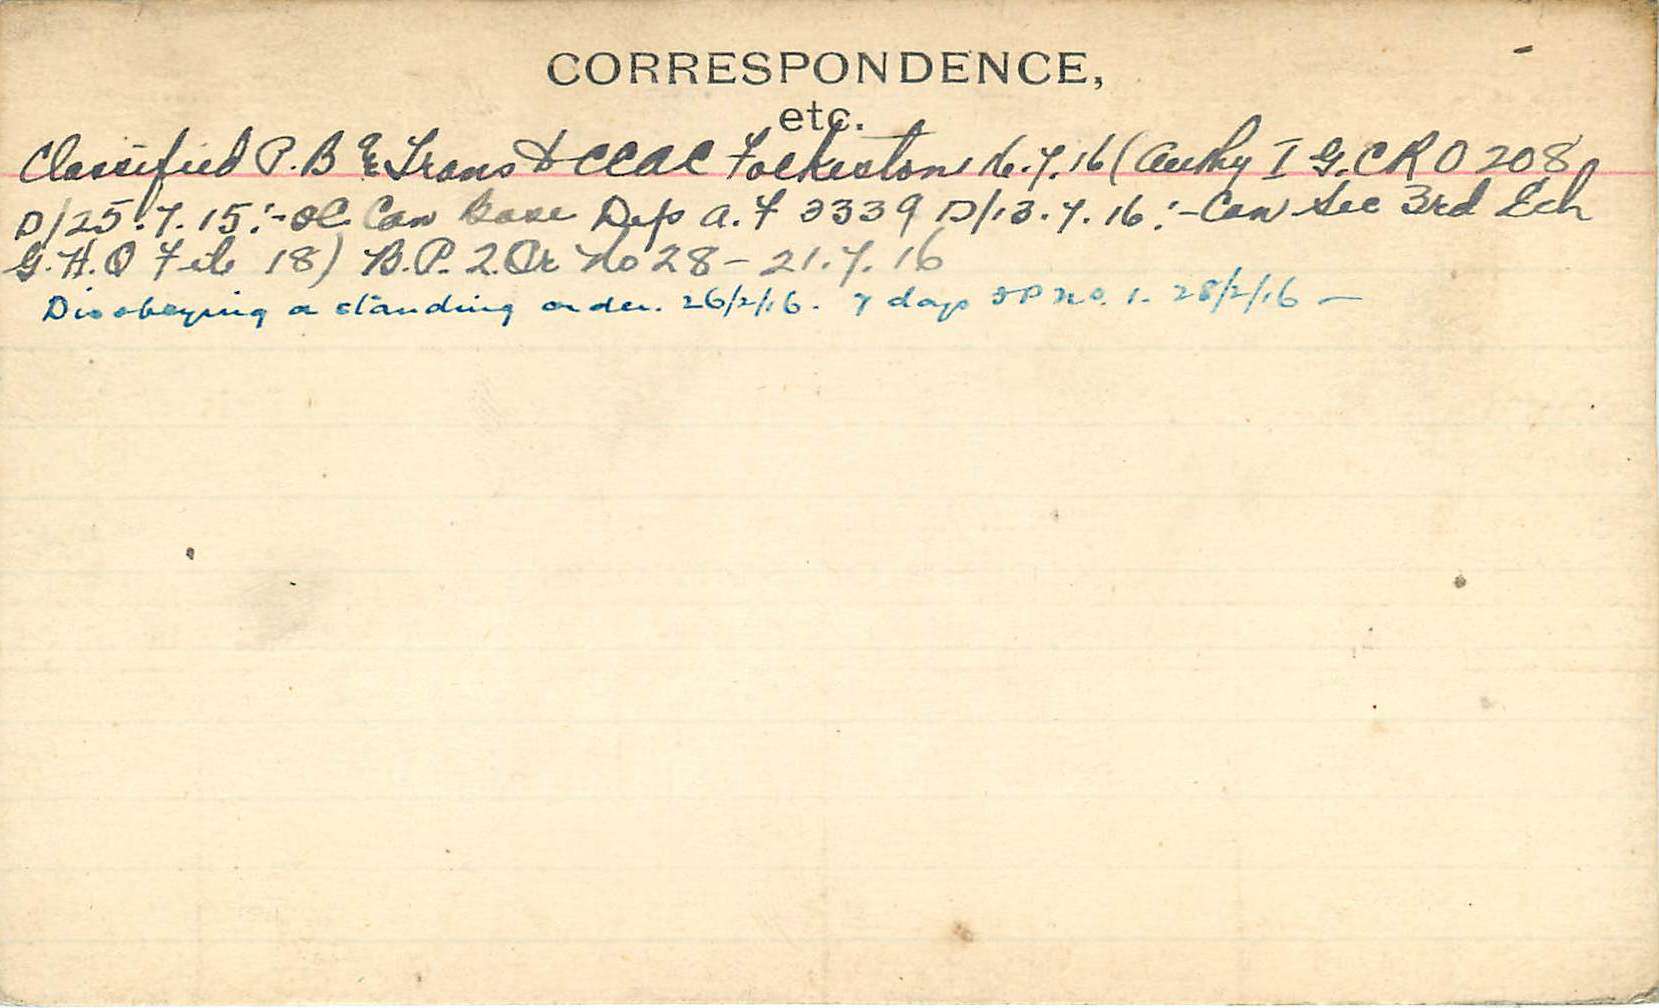 CORRESPONDENCE,
etc.
Classified P.B & Trans to CCAC Folkestone 16.7.16 (Authy I G. CRO 208
D/25.7.15:- OC Can Base Dep A.F 3339 D/13.7.16:- Can Sec 3rd Ech
G.H.Q File 18) B.P. 2. Or No 28 - 21.7.16
Disobeying a standing order. 26/2/16. 7 days FP no. 1. 28/2/16 —